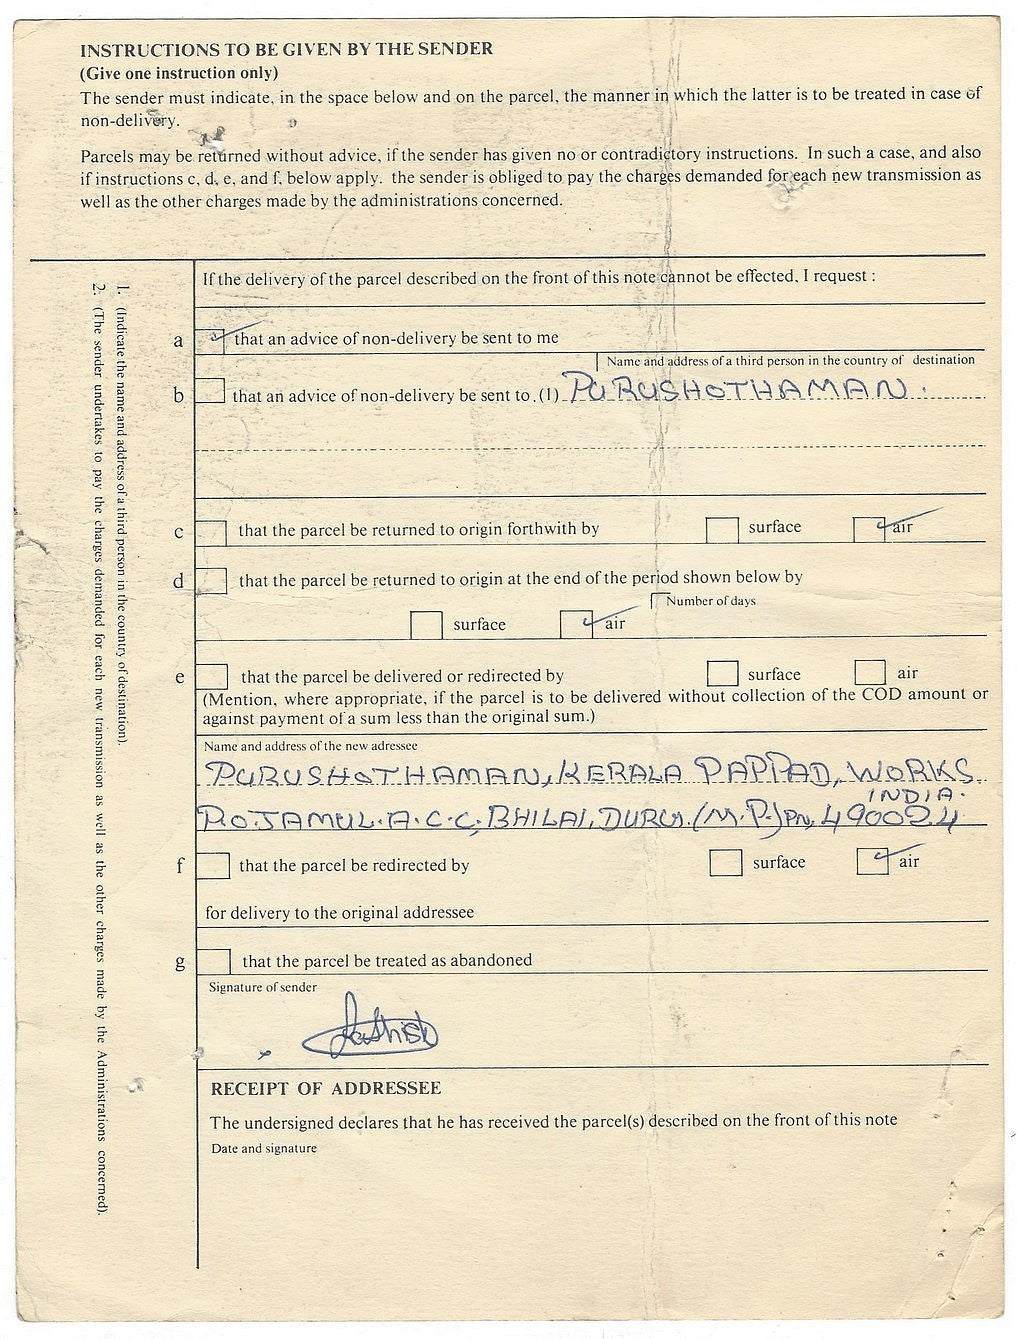 INSTRUCTIONS TO BE GIVEN BY THE SENDER
(Give one instruction only)
The sender must indicate, in the space below and on the parcel, the manner in which the latter is to be treated in case of
non-delivery.
Parcels may be returned without advice, if the sender has given no or contradictory instructions. In such a case, and also
if instructions c, d, e, and f, below apply. the sender is obliged to pay the charges demanded for each new transmission as
well as the other charges made by the administrations concerned.
1. (Indicate the name and address of a third person in the country of destination).
2. (The sender undertakes to pay the charges demanded for each new transmission as well as the other charges made by the Administrations concerned).
If the delivery of the parcel described on the front of this note cannot be effected, I request :
a that an advice of non-delivery be sent to me
Name and address of a third person in the country of destination
b that an advice of non-delivery be sent to. (1) PURUSHOTHAMAN.
c that the parcel be returned to origin forthwith by surface air
d that the parcel be returned to origin at the end of the period shown below by
Number of days
surface air
e that the parcel be delivered or redirected by surface air
(Mention, where appropriate, if the parcel is to be delivered without collection of the COD amount or
against payment of a sum less than the original sum.)
Name and address of the new adressee
PURUSHOTHAMAN, KERALA PAPPAD, WORKS.
INDIA.
P.O. JAMUL. A.C.C, BHILAI, DURG. (M.P.) PN, 490024
f that the parcel be redirected by surface air
for delivery to the original addressee
g that the parcel be treated as abandoned
Signature of sender
RECEIPT OF ADDRESSEE
The undersigned declares that he has received the parcel(s) described on the front of this note
Date and signature